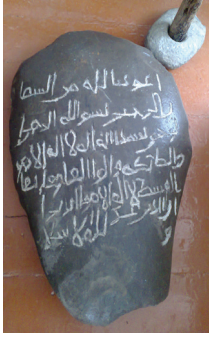 اعوذ بالله من الشيطا
ن الرجيم بسم الله الرحمن
شهد الله انه لا اله الا هو
والملائكة واولوا العلم قائما
بالقسط لا اله الا هو العزيز
ان الدين عند
الله الاسلا
م